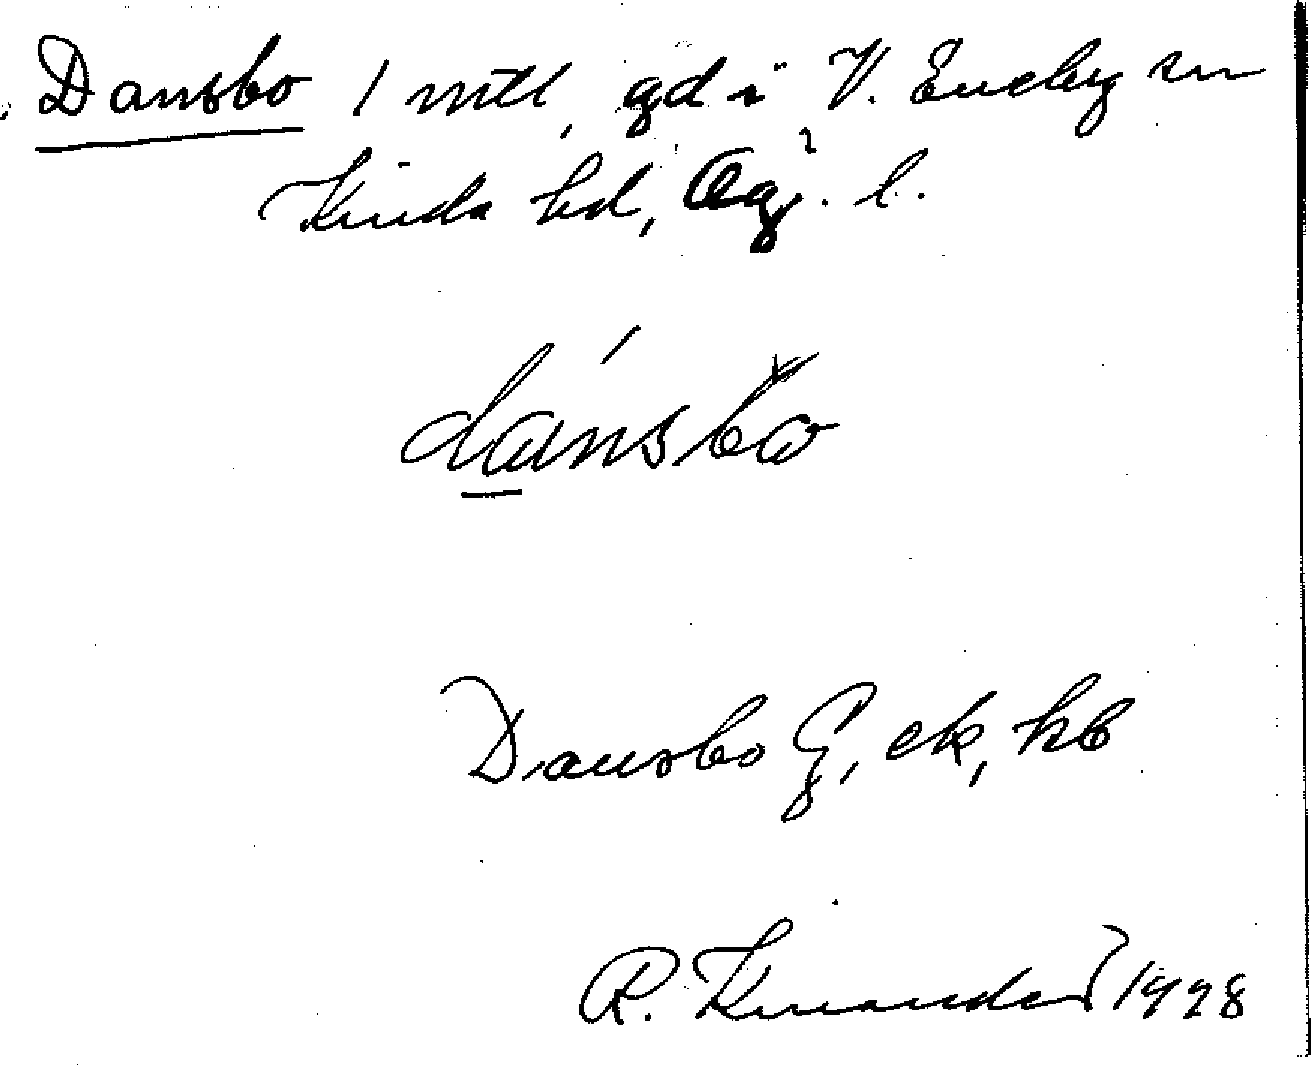 Dansbo 1 mtl, gd i V. Eneby sn
Kinda hd, Ög. l.
dánsbo
Dansbo G, ek, kb
R. Kinander 1928